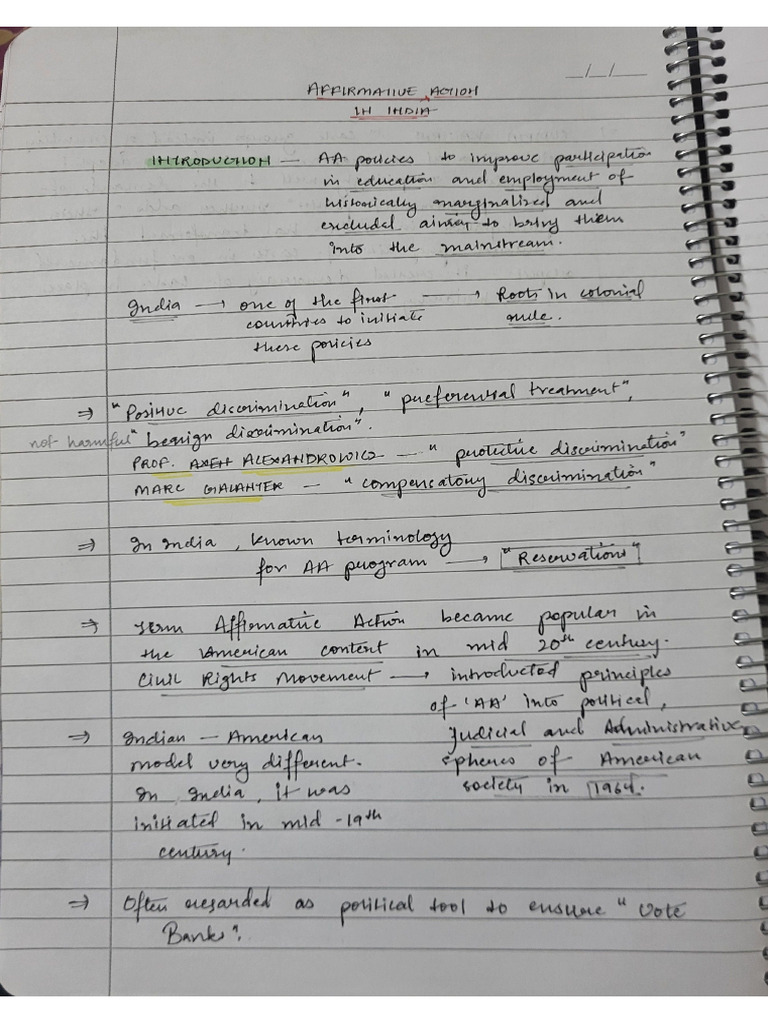 __/__/__
AFFIRMATIVE ACTION
IN INDIA
INTRODUCTION — AA policies to improve participation
in education and employment of
historically marginalized and
excluded aiming to bring them
into the mainstream.
India → one of the first → Roots in colonial
countries to initiate rule.
these policies
⇒ "Positive discrimination", "preferential treatment",
not harmful "benign discrimination".
PROF. AXEH ALEXANDROWICZ — "protective discrimination"
MARC GALANTER — "compensatory discrimination"
⇒ In India, known terminology
for AA program → "Reservations"
⇒ Term Affirmative Action became popular in
the American content in mid 20th century.
Civil Rights Movement → introducted principles
of 'AA' into political,
⇒ Indian — American judicial and Administrative
model very different. spheres of American
In India, it was society in 1964.
initiated in mid -19th
century.
⇒ Often regarded as political tool to ensure "Vote
Banks".